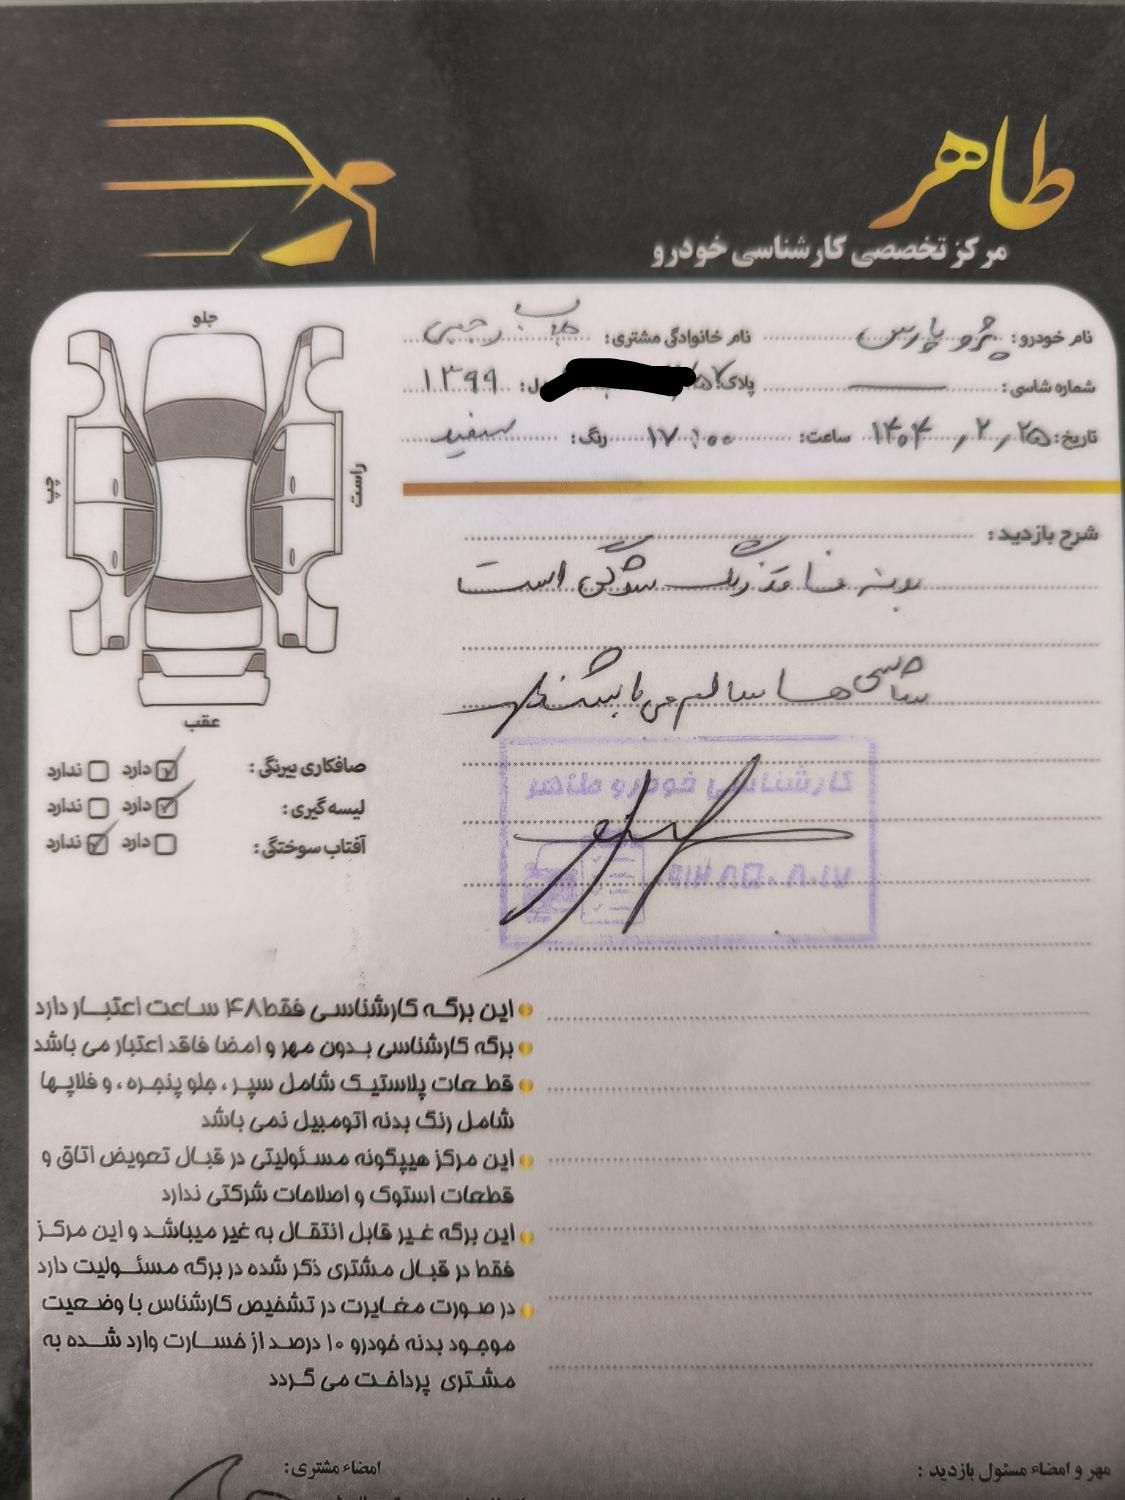 طاهر
مرکز تخصصی کارشناسی خودرو
نام خودرو: پژو پارس نام خانوادگی مشتری: جناب رجبی
شماره شاسی: پلاک: ل: ۱۳۹۹
تاریخ: ۱۴۰۴/۲/۲۵ ساعت: ۱۷:۰۰ رنگ: سفید
جلو
چپ
راست
عقب
شرح بازدید:
بدنه فاقد رنگ شدگی است
شاسی ها سالم می باشند
صافکاری بیرنگی: دارد ندارد
لیسه گیری: دارد ندارد
آفتاب سوختگی: دارد ندارد
کارشناسی خودرو طاهر
این برگه کارشناسی فقط ۴۸ ساعت اعتبار دارد
برگه کارشناسی بدون مهر و امضا فاقد اعتبار می باشد
قطعات پلاستیک شامل سپر ، جلو پنجره ، و فلاپها
شامل رنگ بدنه اتومبیل نمی باشد
این مرکز هیچگونه مسئولیتی در قبال تعویض اتاق و
قطعات استوک و اصلاحات شرکتی ندارد
این برگه غیر قابل انتقال به غیر میباشد و این مرکز
فقط در قبال مشتری ذکر شده در برگه مسئولیت دارد
در صورت مغایرت در تشخیص کارشناس با وضعیت
موجود بدنه خودرو ۱۰ درصد از خسارت وارد شده به
مشتری پرداخت می گردد
مهر و امضاء مسئول بازدید : امضاء مشتری: